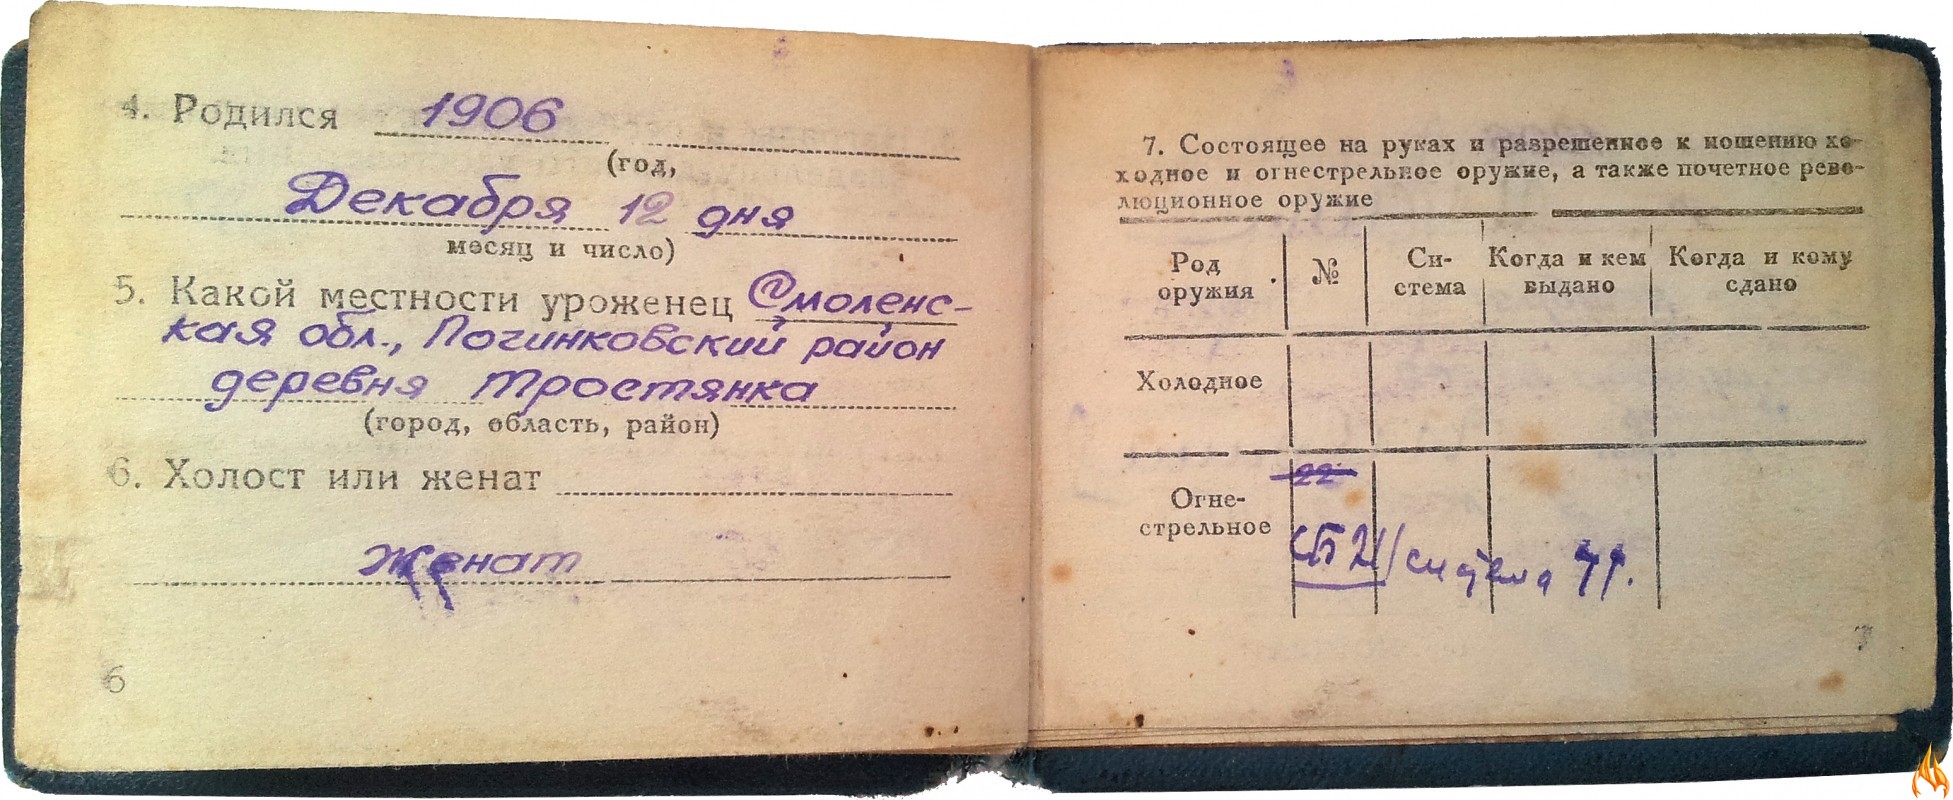 4. Родился 1906
(год,
Декабря 12 дня
месяц и число)
5. Какой местности уроженец Смоленс-
кая обл., Погинковский район
деревня Тростянка
(город, область, район)
6. Холост или женат
Женат
6
7. Состоящее на руках и разрешенное к ношению хо-
ходное и огнестрельное оружие, а также почетное рево-
люционное оружие
Род оружия № Си- Когда и кем Когда и кому
стема выдано сдано
Холодное
22
Огне-
стрельное
система
7